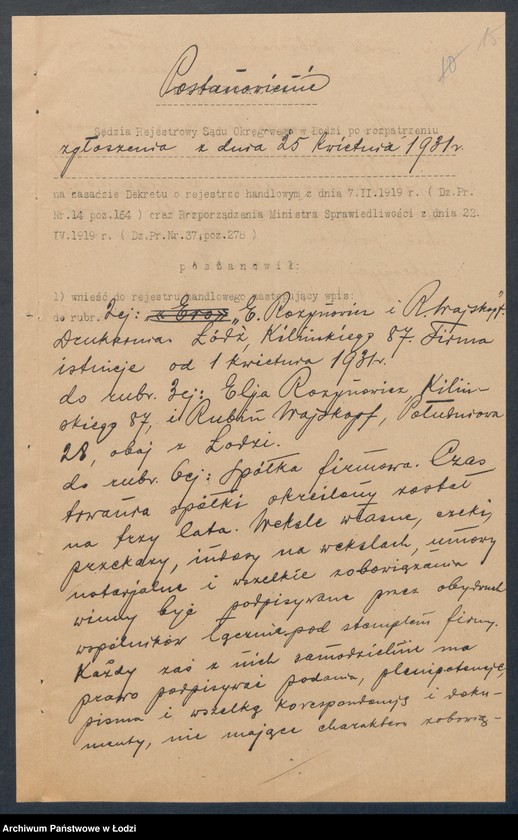 15
10
Postanowienie
Sędzia Rejestrowy Sądu Okręgowego w Łodzi po rozpatrzeniu
zgłoszenia z dnia 25 kwietnia 1931 r.
na zasadzie Dekretu o rejestrze handlowym z dnia 7.II.1919 r. ( Dz.Pr.
Nr.14 poz.164 ) oraz Rozporządzenia Ministra Sprawiedliwości z dnia 22.
IV.1919 r. ( Dz.Pr.Nr.37,poz.278 )
postanowił:
1) wnieść do rejestru handlowego następujący wpis:
do rubr. 2ej: „Eros" „E. Rozynowicz i R. Wajskopf"
Drukarnia. Łódź, Kilińskiego 87. Firma
istnieje od 1 kwietnia 1931r.
do rubr. 3ej: Elja Rozynowicz, Kiliń-
skiego 87, i Rubin Wajskopf, Południowa
28, obaj z Łodzi.
do rubr. 6ej: Spółka firmowa. Czas
trwania spółki określony został
na trzy lata. Weksle własne, czeki,
przekazy, indosy na wekslach, umowy
notarjalne i wszelkie zobowiązania
winny być podpisywane przez obydwuch
wspólników łącznie pod stemplem firmy.
Każdy zaś z nich samodzielnie ma
prawo podpisywać podania, plenipotencje,
pisma i wszelką korespondencję i doku-
menty, nie mające charakteru zobowią-
Archiwum Państwowe w Łodzi